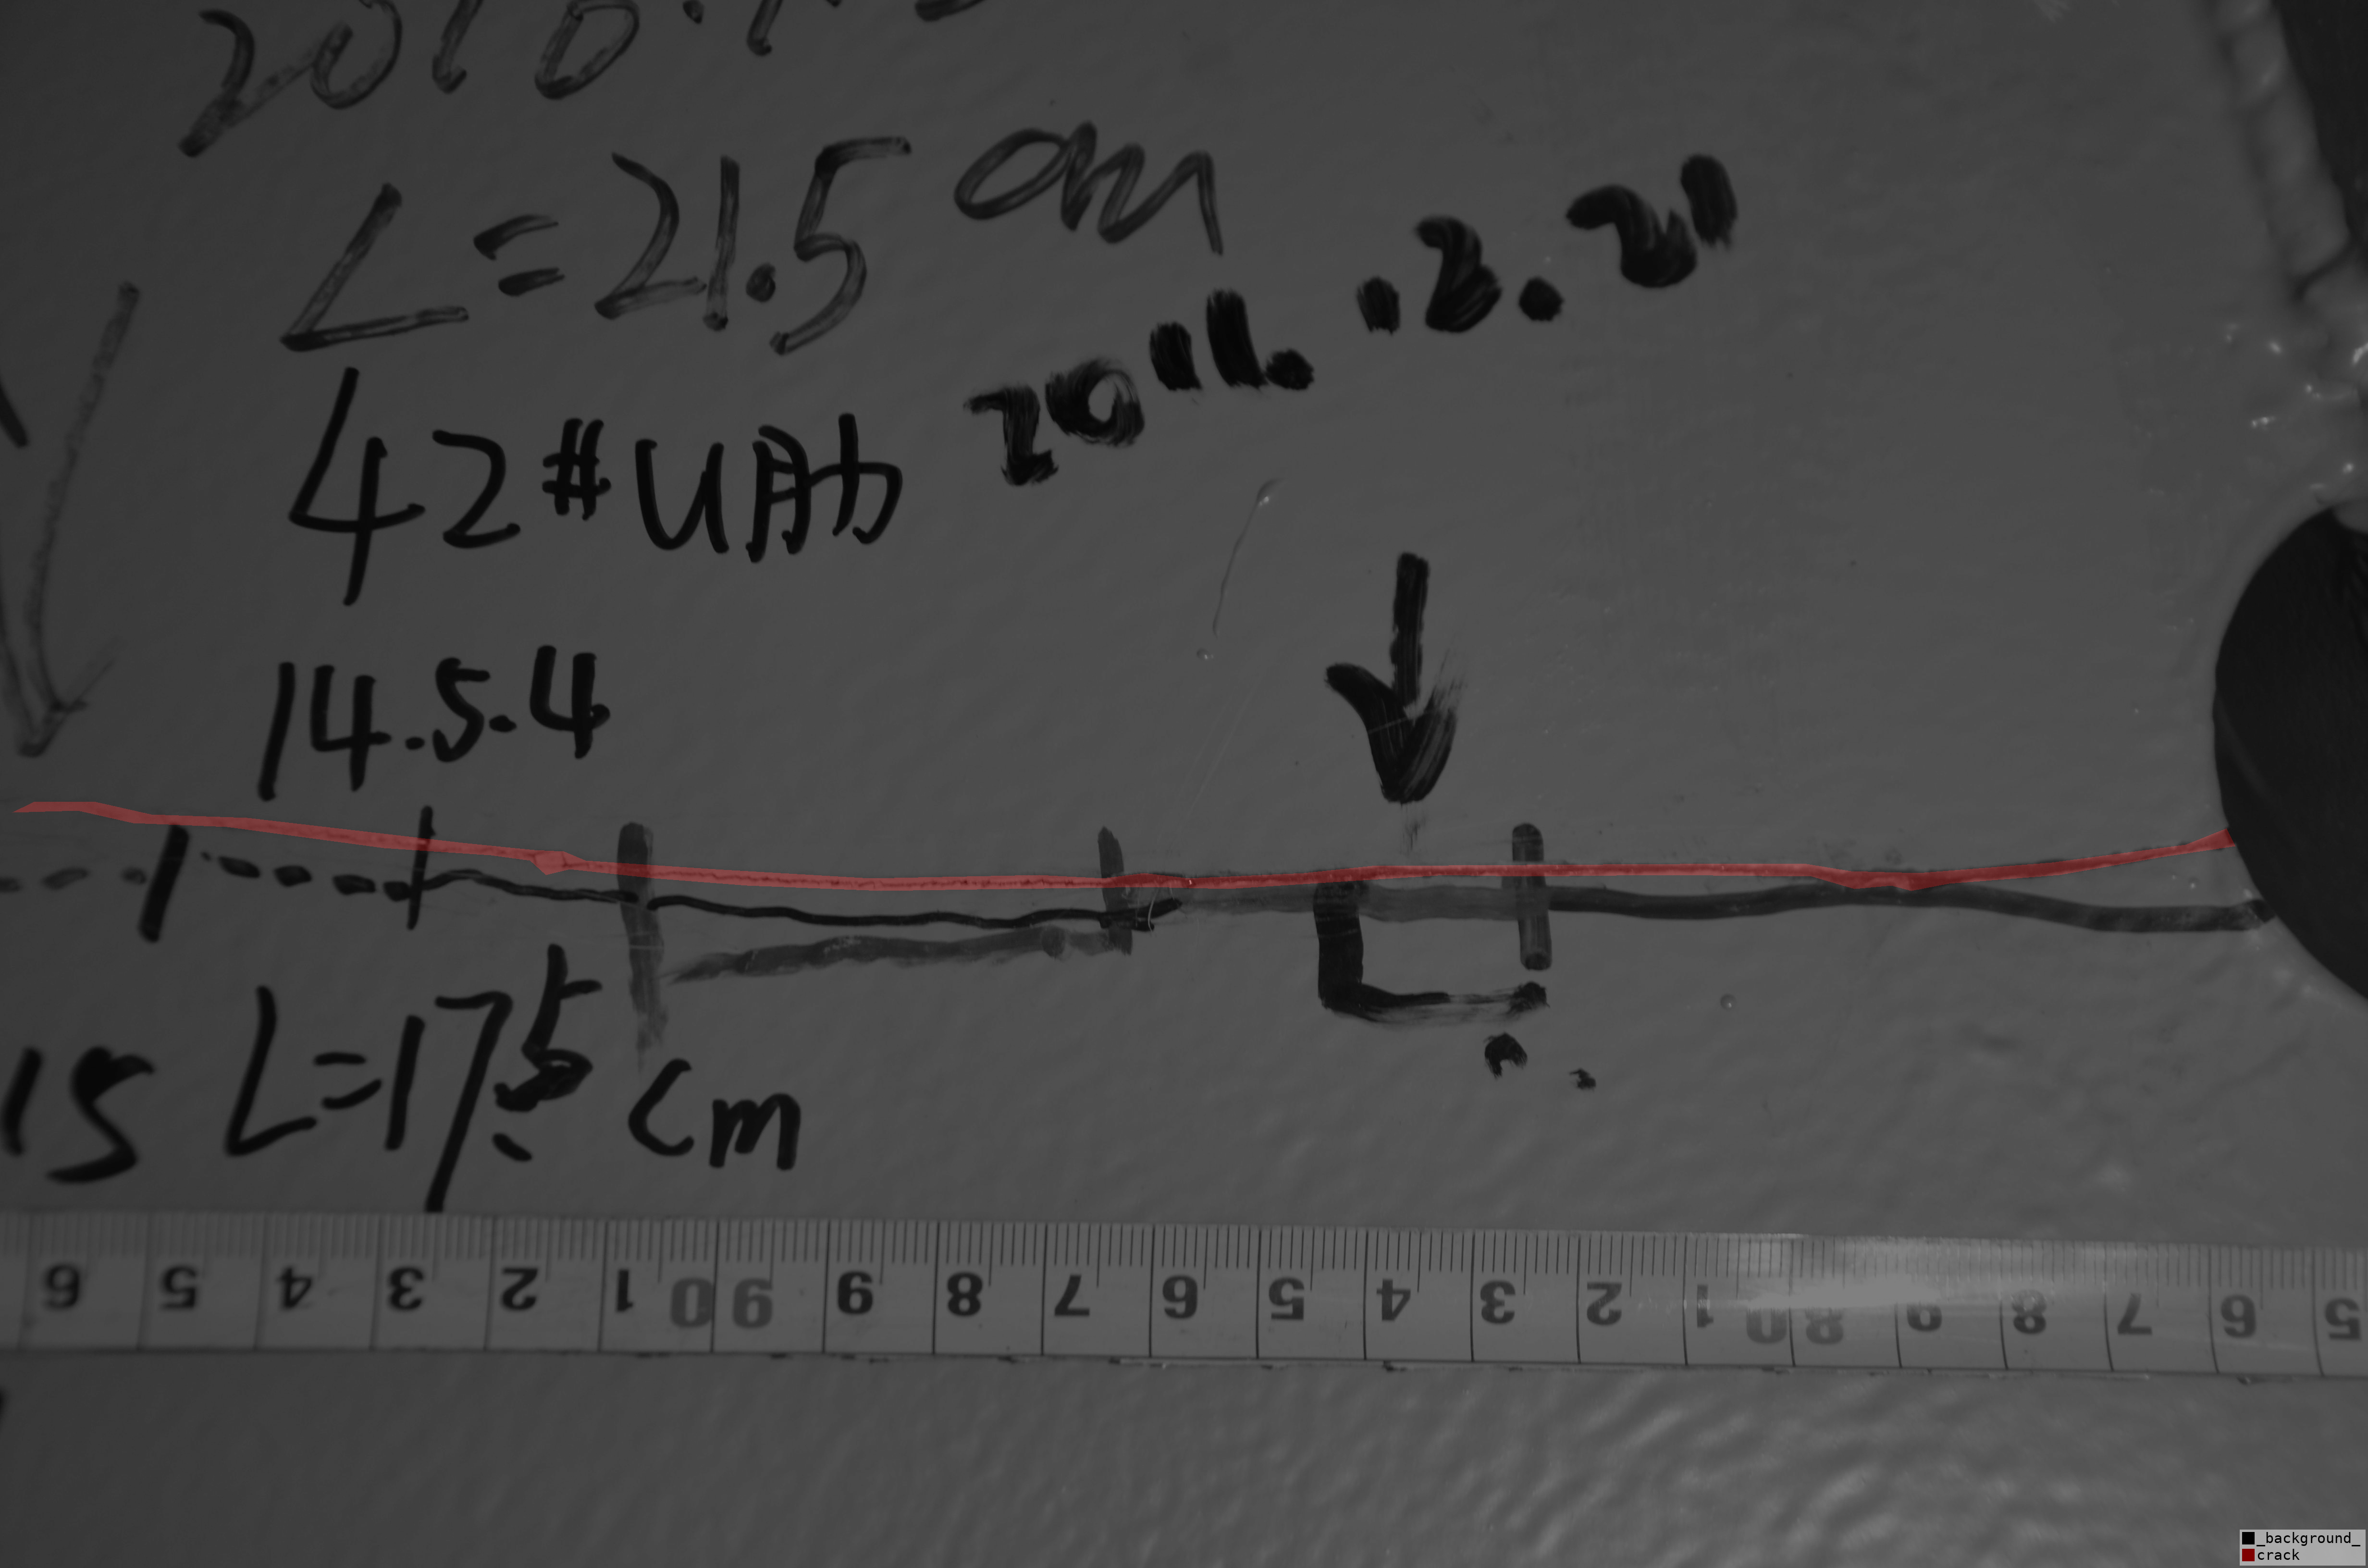 L=21.5 cm
2011..2.21
42#U肋
14.5.4
15 L=17.5 cm
6 5 4 3 2 1 90 9 8 7 6 5 4 3 2 1 80 9 8 7 6 5
_background_
crack